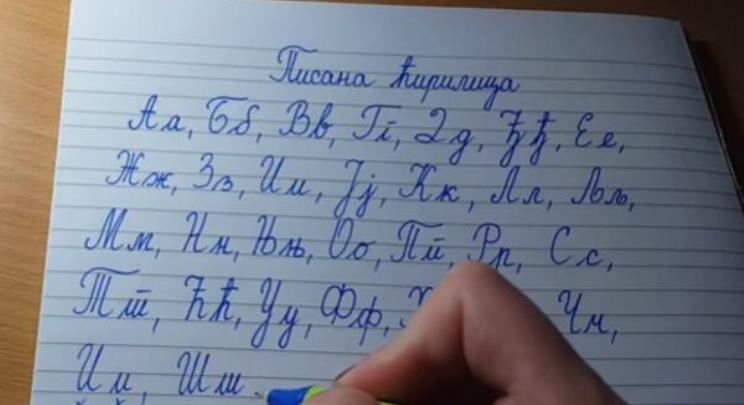 Писана ћирилица
Аа, Бб, Вв, Гг, Дд, Ђђ, Ее,
Жж, Зз, Ии, Јј, Кк, Лл, Љљ,
Мм, Нн, Њњ, Оо, Пп, Рр, Сс,
Тт, Ћћ, Уу, Фф, Чч,
Џџ, Шш